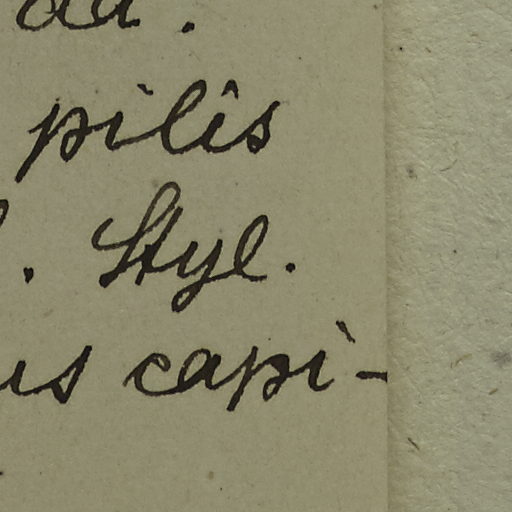 pilis
. Styl.
us capi-